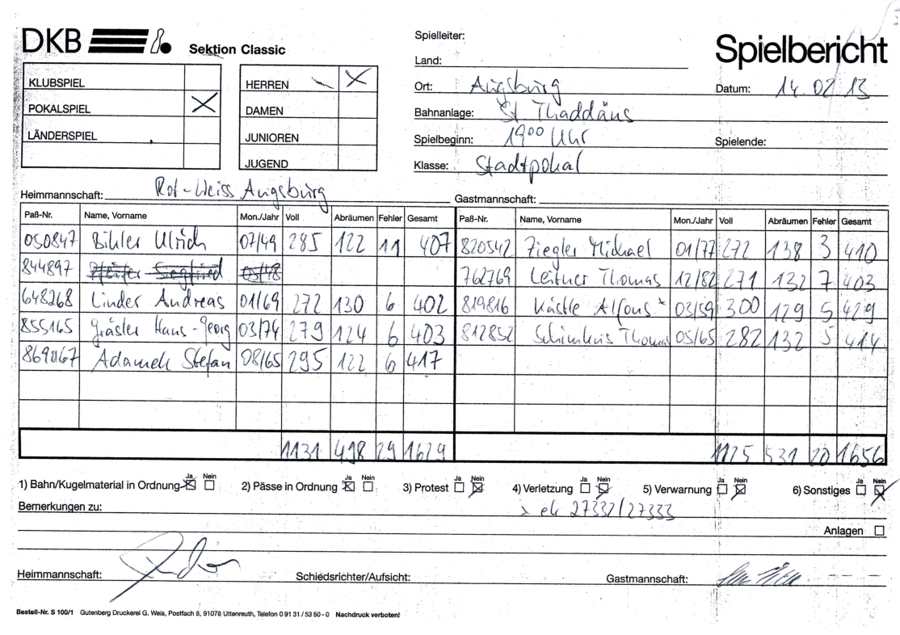 DKB Sektion Classic
Spielbericht
Spielleiter:
Land:
Ort: Augsburg
Datum: 14.02.13
Bahnanlage: St Thaddäus
Spielbeginn: 19⁰⁰ Uhr
Spielende:
Klasse: Stadtpokal
KLUBSPIEL
POKALSPIEL X
LÄNDERSPIEL
HERREN X
DAMEN
JUNIOREN
JUGEND
Heimmannschaft: Rot-Weiss Augsburg
Gastmannschaft:
Paß-Nr. Name, Vorname Mon./Jahr Voll Abräumen Fehler Gesamt Paß-Nr. Name, Vorname Mon./Jahr Voll Abräumen Fehler Gesamt
050847 Bihler Ulrich 07/49 285 122 11 407 820542 Ziegler Michael 01/77 272 138 3 410
844897 Pfeifer Siegfried 762769 Leitner Thomas 12/82 271 132 7 403
648268 Linder Andreas 01/69 272 130 6 402 819816 Kästle Alfons 03/59 300 129 5 429
855165 Gräsler Hans-Georg 03/74 279 124 6 403 812852 Thomas 05/65 282 132 5 414
869067 Adamek Stefan 08/65 295 122 6 417
1131 498 29 1629 1125 531 20 1656
1) Bahn/Kugelmaterial in Ordnung Ja Nein 2) Pässe in Ordnung Ja Nein 3) Protest Ja Nein 4) Verletzung Ja Nein 5) Verwarnung Ja Nein 6) Sonstiges Ja Nein
Bemerkungen zu: 27332/27333
Anlagen
Heimmannschaft: Schiedsrichter/Aufsicht: Gastmannschaft:
Bestell-Nr. S 100/1 Gutenberg Druckerei G. Weis, Postfach 8, 91078 Uttenreuth, Telefon 0 91 31 / 53 60 - 0 Nachdruck verboten!